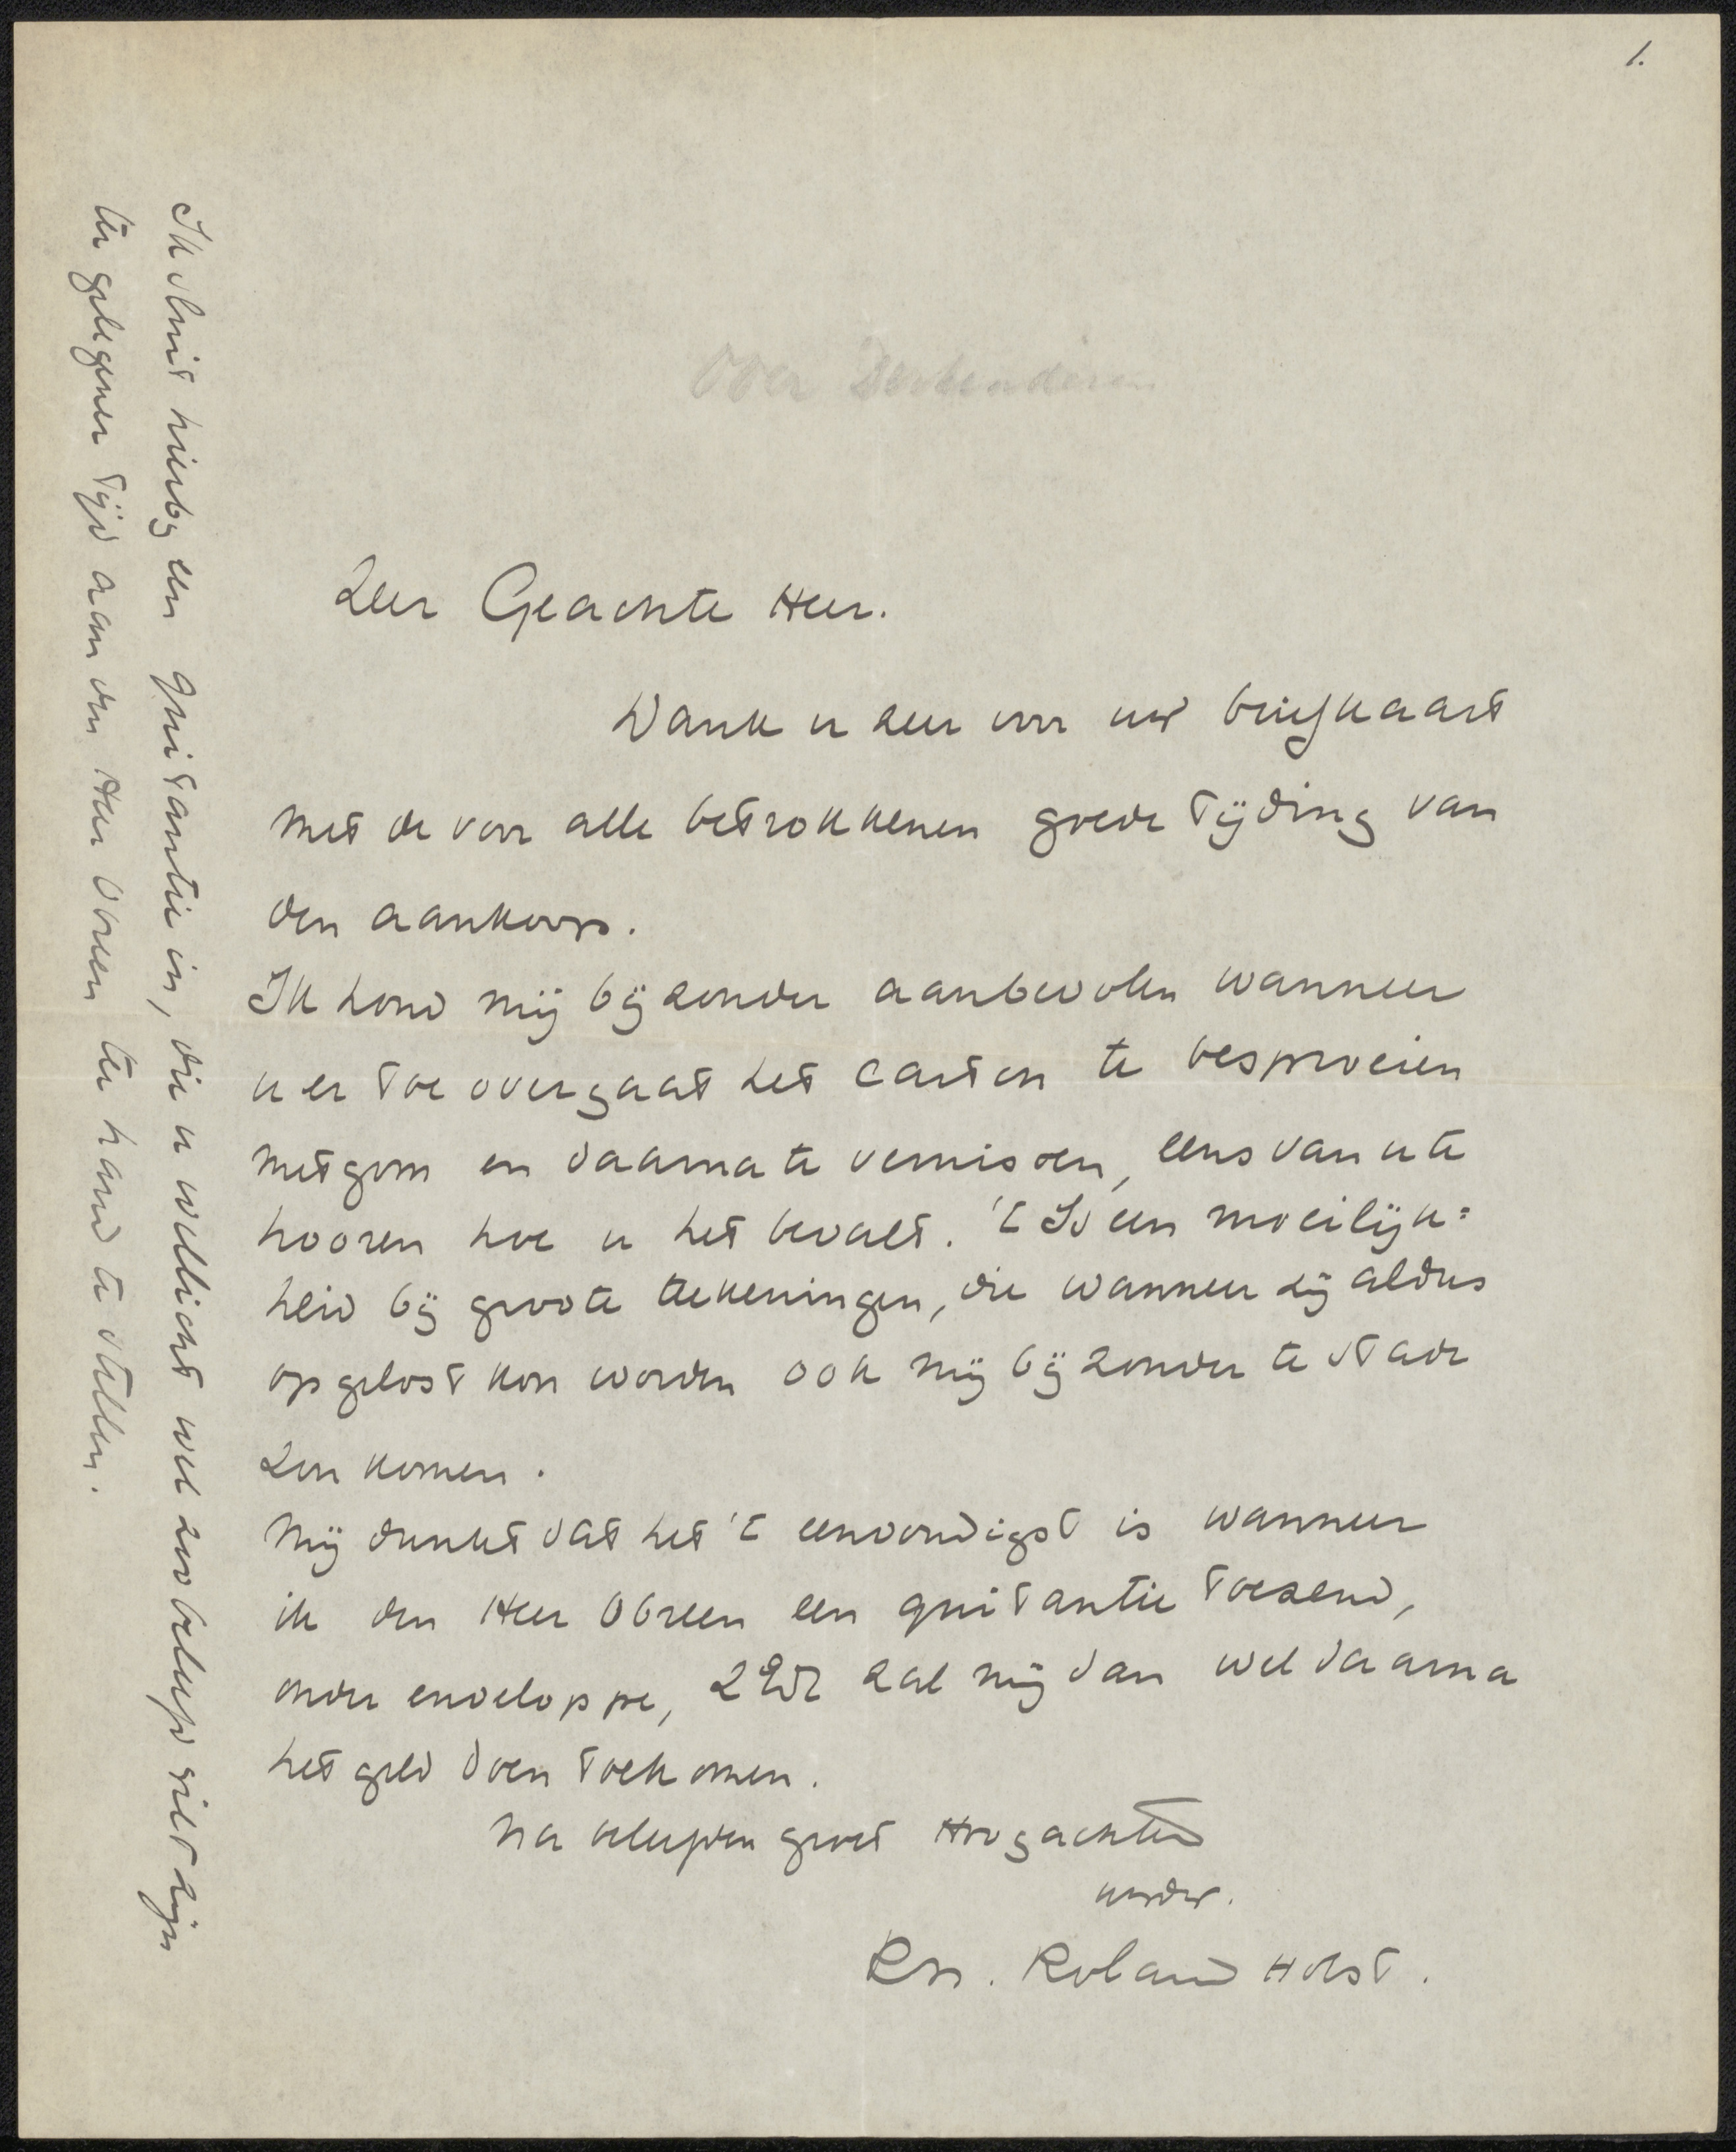 1.
Over Derkinderen
Zeer Geachte Heer.
Dank u zeer voor uw briefkaart
met de voor alle betrokkenen goede tijding van
den aankoop.
Ik houd mij bijzonder aanbevolen wanneer
u er toe overgaat het carton te besproeien
met gom en daarna te vernissen, eens van u te
hooren hoe u het bevalt. 't Is een moeilijk=
heid bij groote teekeningen, die wanneer zij aldus
opgelost kon worden ook mij bijzonder te stade
zou komen.
Mij dunkt dat het 't eenvoudigst is wanneer
ik den Heer Obreen een quitantie toezend,
onder enveloppe, ZEd zal mij dan wel daarna
het geld doen toekomen.
Na beleefden groet Hoogachtend
uwdw.
RN. Roland Holst.
Ik sluit hierbij een quitantie in, die u wellicht wel zoo beleefd wilt zijn
ter gelegener tijd aan den Heer Obreen ter hand te stellen.